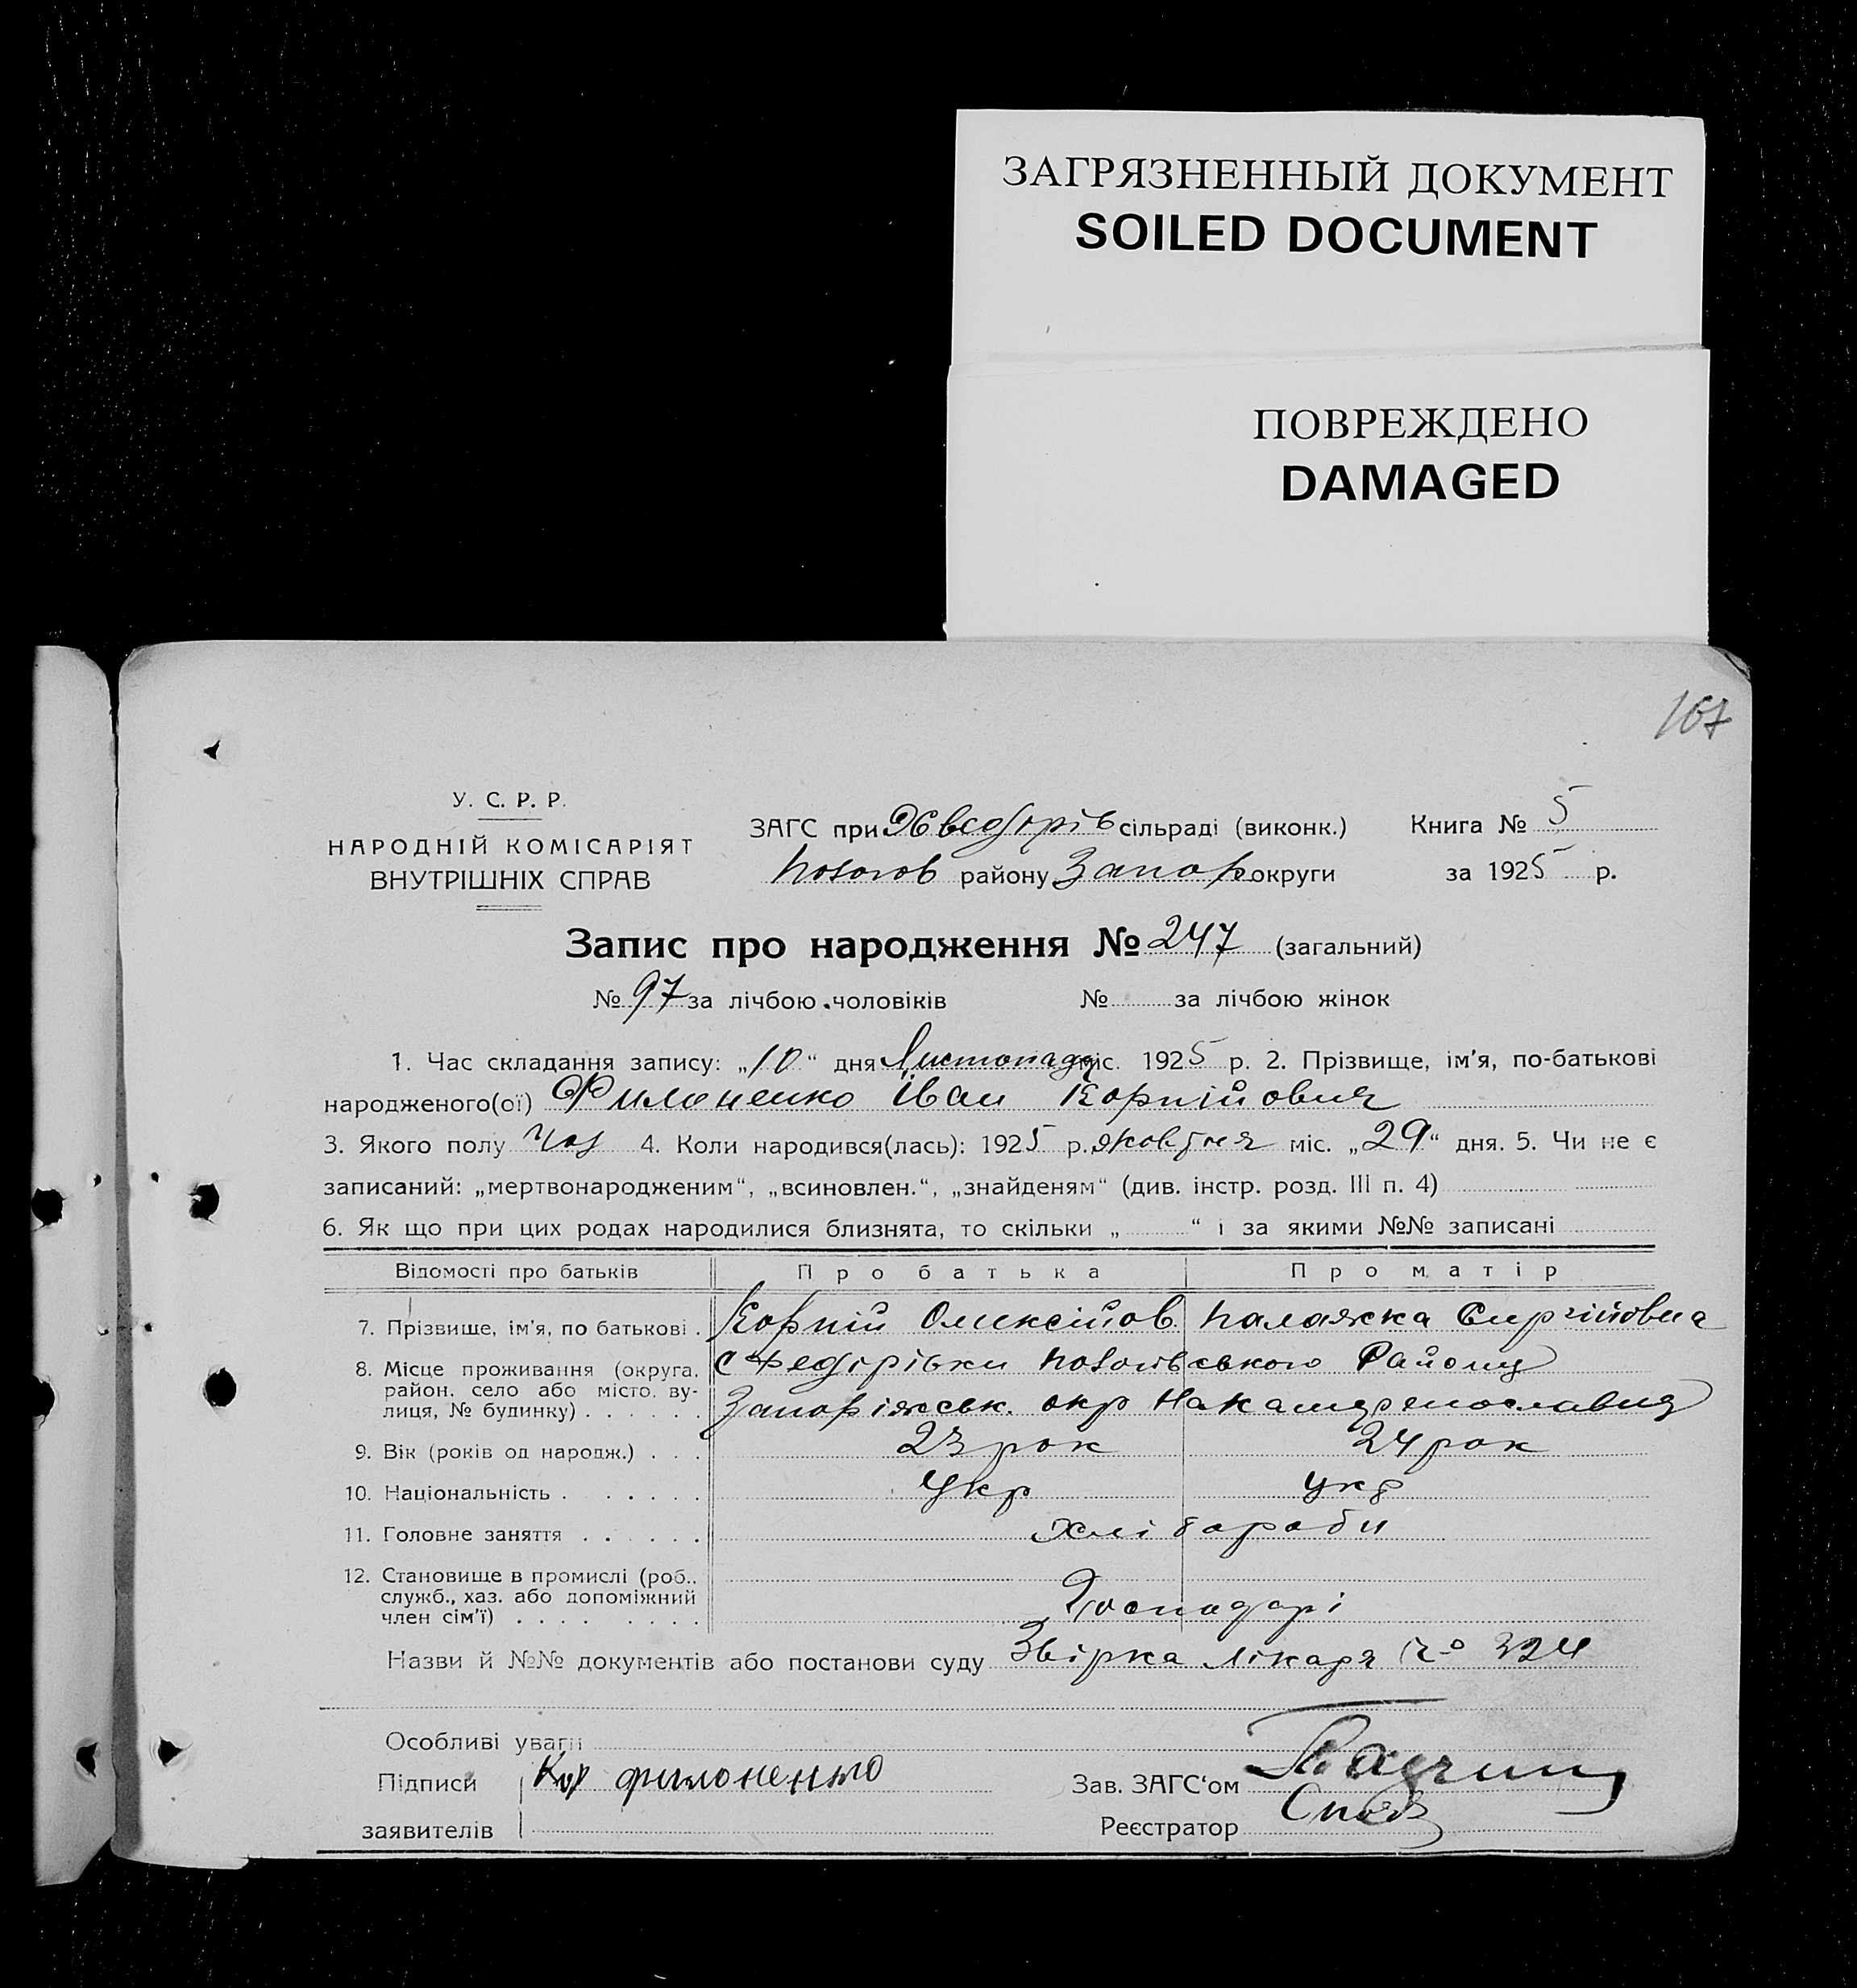 ЗАГРЯЗНЕННЫЙ ДОКУМЕНТ
SOILED DOCUMENT
ПОВРЕЖДЕНО
DAMAGED
167
У. С. Р. Р.
НАРОДНІЙ КОМІСАРІЯТ
ВНУТРІШНІХ СПРАВ
ЗАГС при сільраді (виконк.)
району Запор округи
Книга № 5
за 1925 р.
Запис про народження № 247 (загальний)
№ 97 за лічбою чоловіків № за лічбою жінок
1. Час складання запису: „10“ дня Листопада міс. 1925 р. 2. Прізвище, ім'я, по-батькові
народженого(ої) Филоненко Іван Корнійович
3. Якого полу Чол 4. Коли народився(лась): 1925 р. жовтня міс. „29“ дня. 5. Чи не є
записаний: „мертвонародженим“, „всиновлен.“, „знайденям“ (див. інстр. розд. III п. 4)
6. Як що при цих родах народилися близнята, то скільки „ “ і за якими №№ записані
Відомості про батьків Про батька Про матір
7. Прізвище, ім'я, по батькові . Корній Олексійов. Палажка Сиргійовна
8. Місце проживання (округа, с Федірівки Пологівського Району
район, село або місто, ву-
лиця, № будинку) . . . . . . Запоріжськ. окр
9. Вік (років од народж.) . . . 23 рок 24 рок
10. Національність . . . . . . Укр Укр
11. Головне заняття . . . . . хлібароби
12. Становище в промислі (роб.,
служб., хаз. або допоміжний
член сім'ї) . . . . . . . . . Господарі
Назви й №№ документів або постанови суду Звірка лікаря № 324
Особливі уваги
Підписи Кор филоненко
заявителів
Зав. ЗАГС'ом
Реєстратор